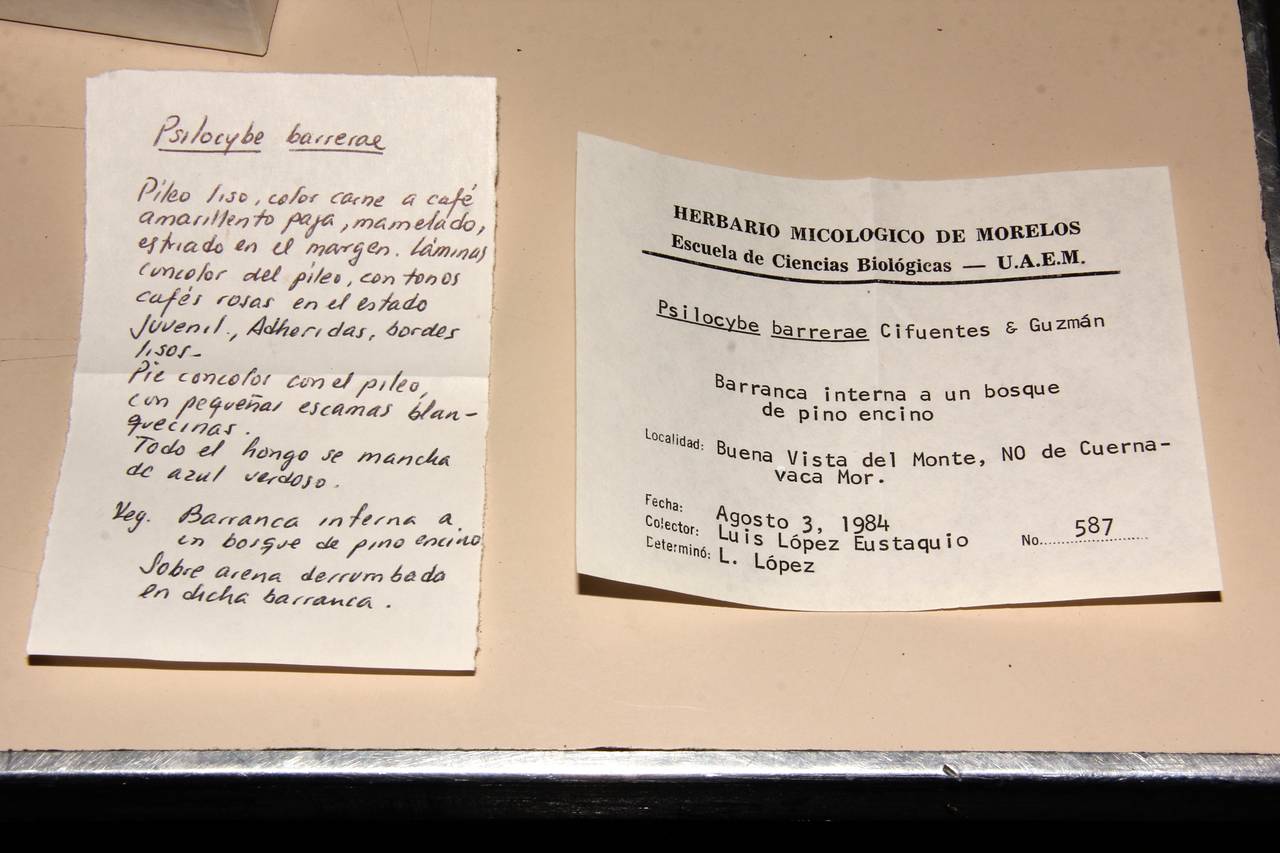 Psilocybe barrerae
Pileo liso, color carne a café
amarillento paja, mamelado,
estriado en el margen. Láminas
concolor del pileo, con tonos
cafés rosas en el estado
juvenil., Adheridas, bordes
lisos.
Pie concolor con el pileo,
con pequeñas escamas blan-
quecinas.
Todo el hongo se mancha
de azul verdoso.
Veg. Barranca interna a
un bosque de pino encino
Sobre arena derrumbada
en dicha barranca.
HERBARIO MICOLOGICO DE MORELOS
Escuela de Ciencias Biológicas — U.A.E.M.
Psilocybe barrerae Cifuentes & Guzmán
Barranca interna a un bosque
de pino encino
Localidad: Buena Vista del Monte, NO de Cuerna-
vaca Mor.
Fecha: Agosto 3, 1984
Colector: Luis López Eustaquio No. 587
Determinó: L. López